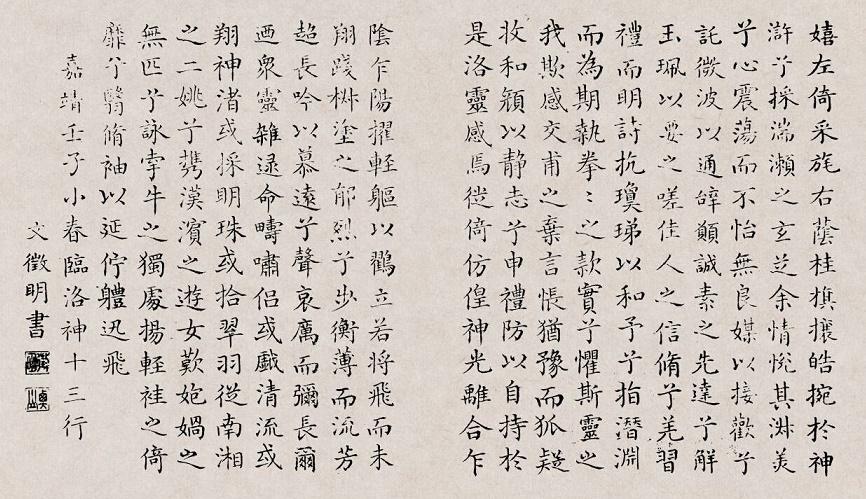 嬉左倚采旄右蔭桂旗攘皓捥於神
滸兮採湍瀨之玄芝余情悅其淋羙
兮心震蕩而不怡無良媒以接歡兮
託微波以通辝願誠素之先達兮解
玉珮以要之嗟佳人之信脩兮羌習
禮而明詩抗瓊珶以和予兮指潛淵
而為期執拳〻之款實兮懼斯靈之
我欺感交甫之棄言悵猶豫而狐疑
收和顏以静志兮申禮防以自持於
是洛靈感焉徙倚仿偟神光離合乍
陰乍陽擢輕軀以鸖立若將飛而未
翔踐椒塗之郁烈兮步衡薄而流芳
超長吟以慕遠兮聲哀厲而彌長爾
迺衆靈雜遝命疇嘯侶或戲清流或
翔神渚或採明珠或拾翠羽從南湘
之二姚兮㩗漢濱之遊女歎匏媧之
無匹兮詠牽牛之獨處揚輕袿之倚
靡兮翳脩袖以延佇軆迅飛
嘉靖壬子小春臨洛神十三行
文徵明書